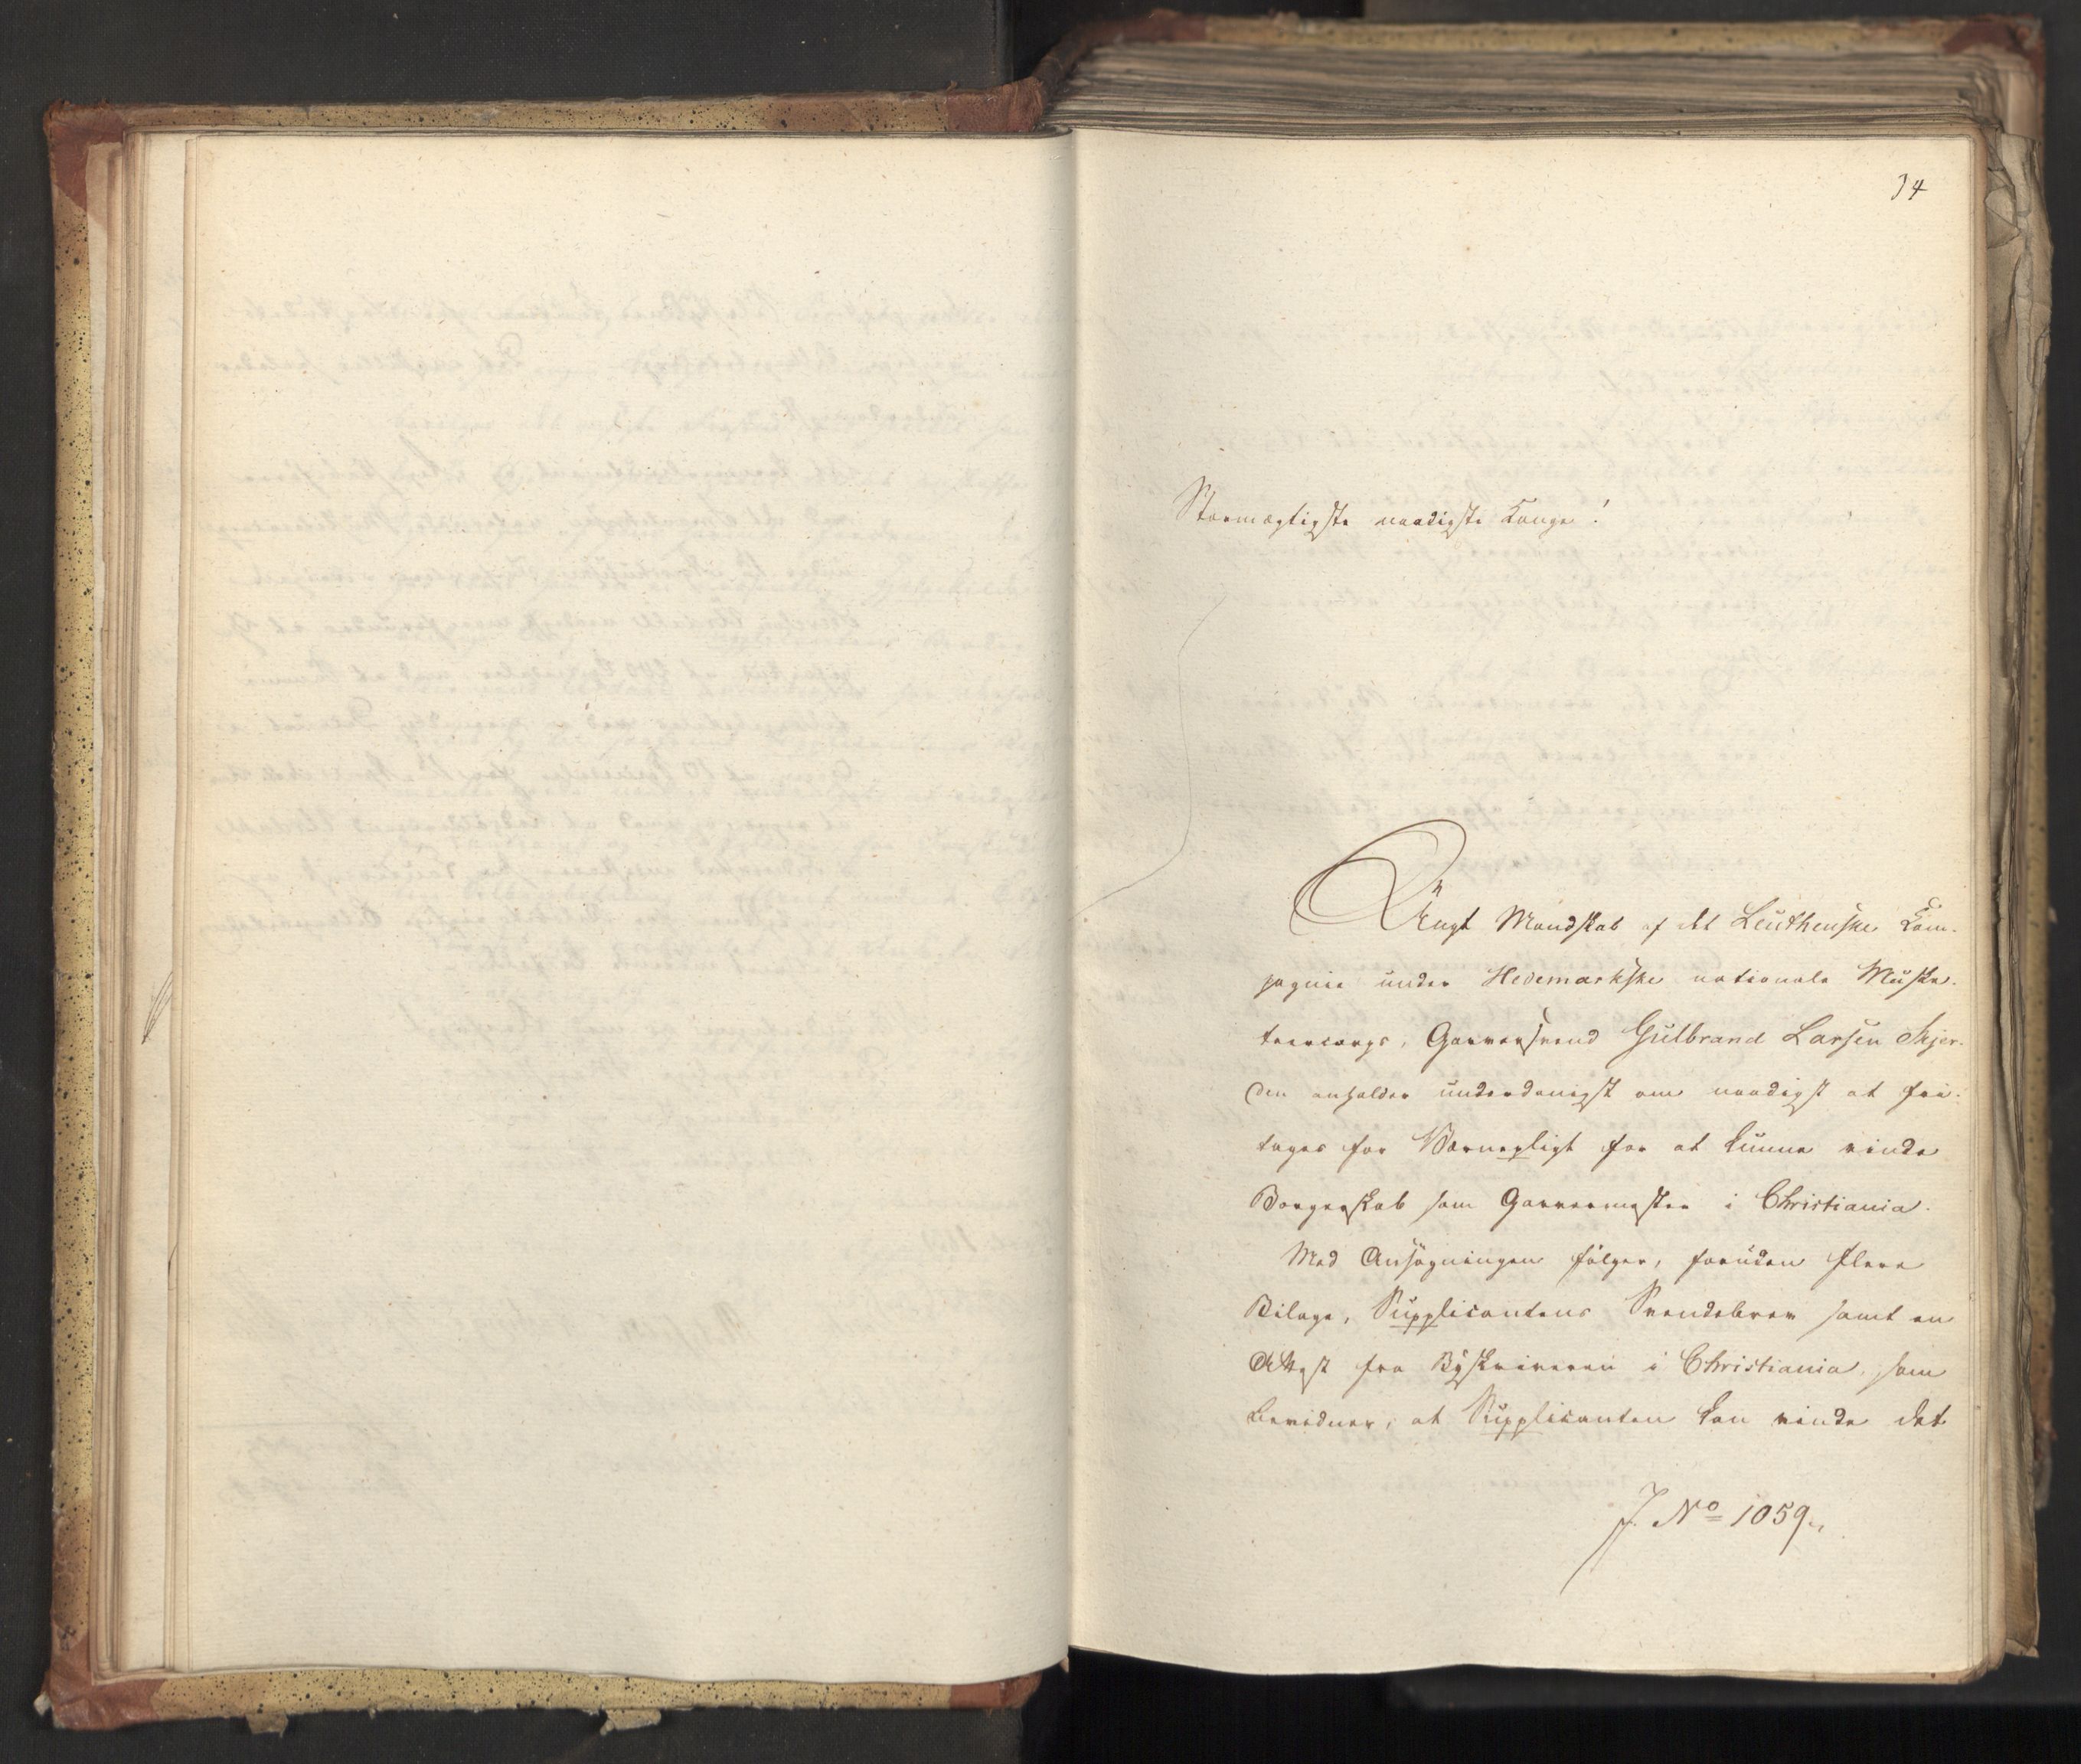 34
Stormægtigste naadigste Konge!
Ungt Mandskab af det Leuthenske Kom-
pagnie under Hedemarkske nationale Muske-
teercorps, Garversvend Gulbrand Larsen Skjer-
den anholder underdanigst om naadigst at fri-
tages for Værnepligt for at kunne vinde
Borgerskab som Garvermester i Christiania.
Med Ansøgningen følger, foruden flere
Bilage, Supplicantens Svendebrev samt en
Attest fra Byskriveren i Christiania, som
bevidner, at Supplicanten kan vinde det
J. No 1059.